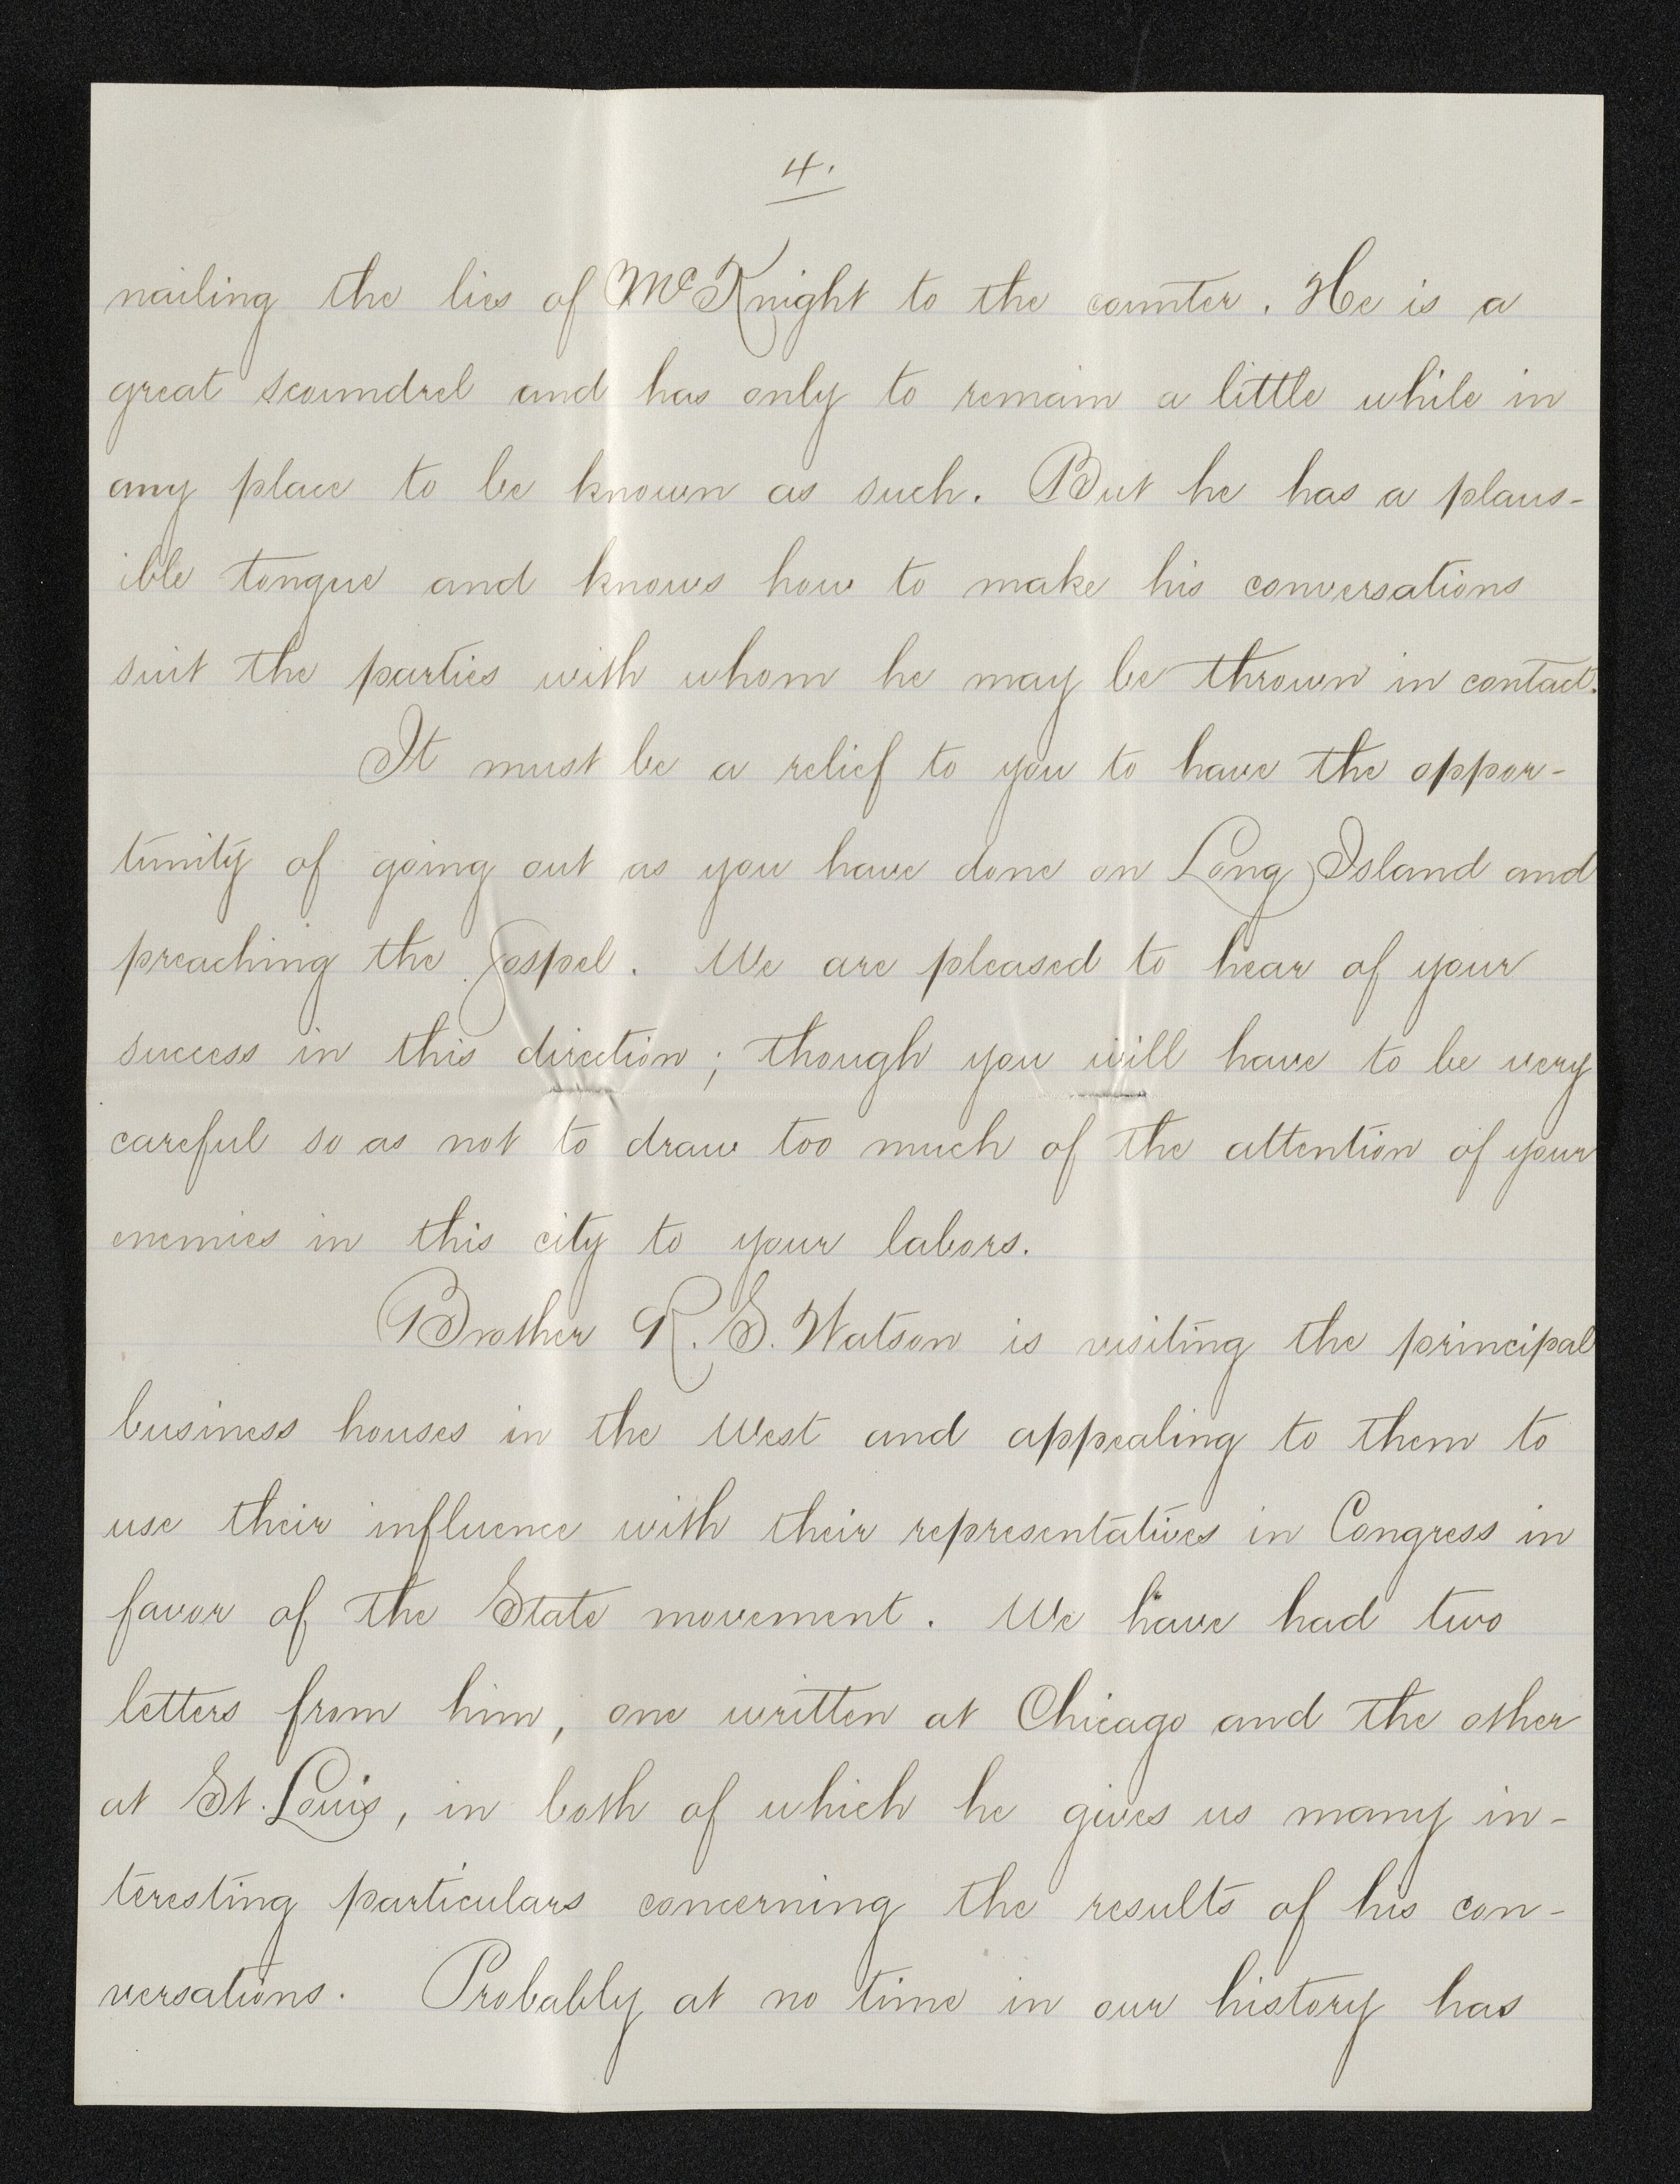 4.
nailing the lies of McKnight to the counter. He is a
great scoundrel and has only to remain a little while in
any place to be known as such. But he has a plaus-
ible tongue and knows how to make his conversations
suit the parties with whom he may be thrown in contact.
It must be a relief to you to have the oppor-
tunity of going out as you have done on Long Island and
preaching the Gospel. We are pleased to hear of your
success in this direction; though you will have to be very
careful so as not to draw too much of the attention of your
enemies in this city to your labors.
Brother R. G. Watson is visiting the principal
business houses in the West and appealing to them to
use their influence with their representatives in Congress in
favor of the State movement. We have had two
letters from him, one written at Chicago and the other
at St. Louis, in both of which he gives us many in-
teresting particulars concerning the results of his con-
versations. Probably at no time in our history has